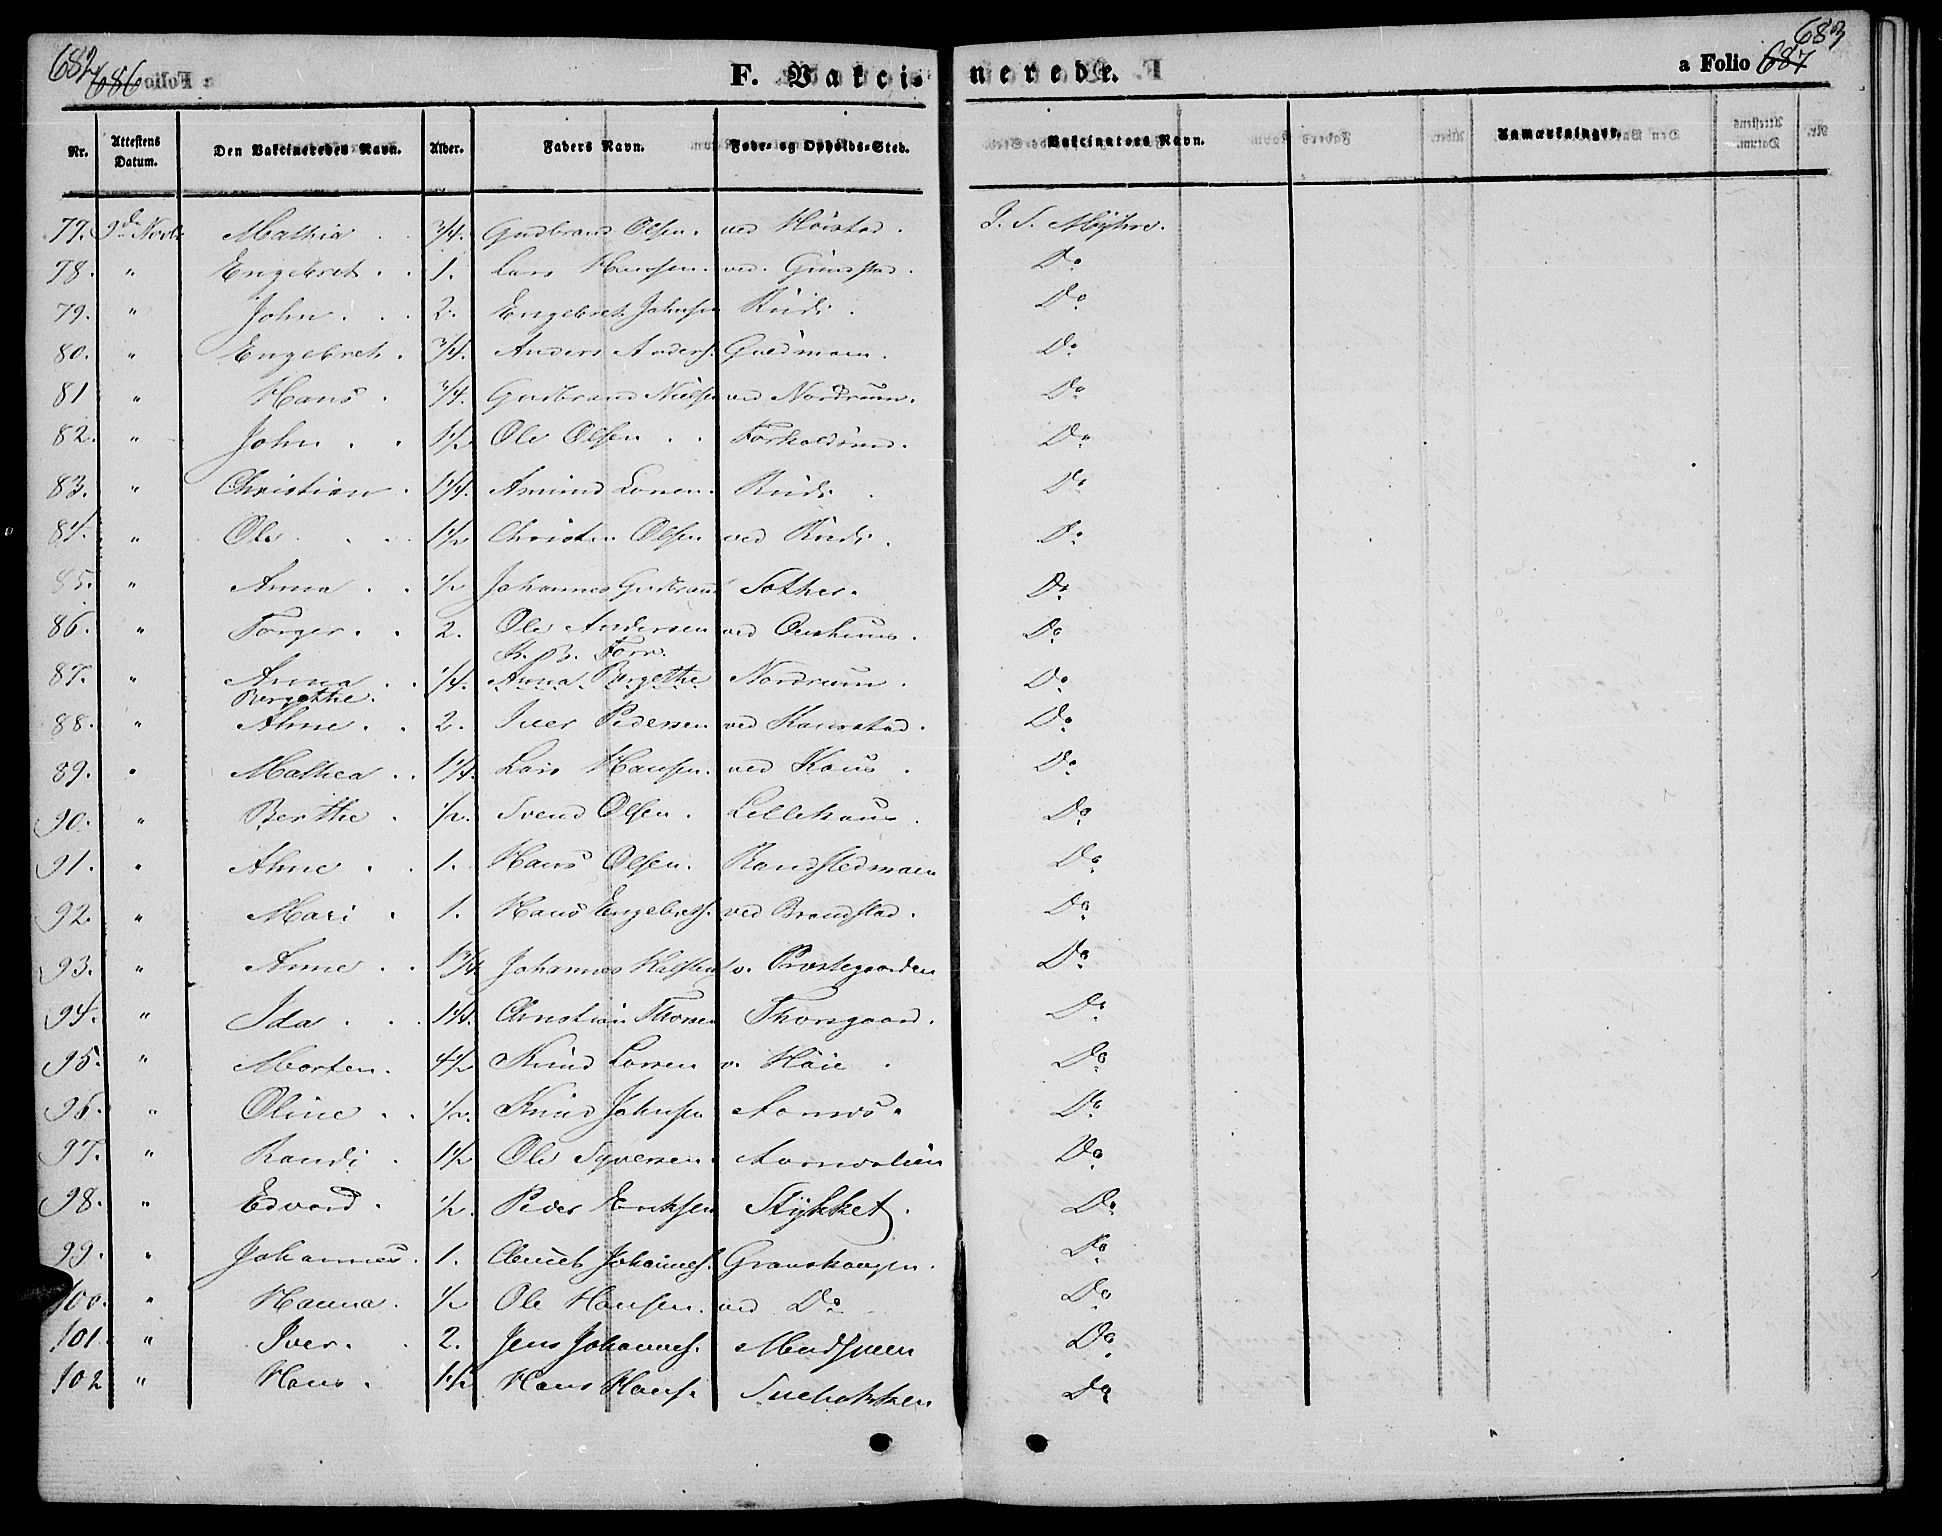 682 686
F. Vakci-
nerede.
a Folio 687 683
Nr. Attestens Datum. Den Vakcineredes Navn. Alder. Faders Navn. Føde- og Opholds-Sted. Vakcinators Navn. Anmærkninger.
77. 9de Novbr Mathia 3/4. Gudbrand Olsen. ved Höistad. J. S. Myhre.
78. " Engebret 1. Lars Hansen. ved Do
79. " John 2. Engebret Johnsen Rudi. Do
80. " Engebret 3/4. Anders Anders. Guldmoen. Do
81 " Hans 3/4. Gudbrand Nielsen ved Nordrum. Do
82. " John 1 1/2 Ole Olsen Do
83. " Christian 1 1/4. Amund Larsen. Rudi. Do
84. " Ole 1 1/2 Christen Olsen ved Rudi. Do
85. " Anna 1/2 Johannes Gudbrand Sother. Do
86. " Torger 2. Ole Andersen ved Do
87. " Anna Bergethe. 1/4. Anna Bergethe Nordrum. Do
88. " Ahne 2. Iver Pedersen ved Do
89. " Mathea 1 1/4. Lars Hansen. ved Haus. Do
90. " Berthe 1/2. Svend Olsen. Lillehaus. Do
91. " Ahne 1. Hans Olsen. Do
92. " Mari 1. Hans Engebrets. ved Brandstad. Do
93. " Anne 1 3/4 Johannes v. Præstegaarden Do
94. " Ida 1 1/4. Christian Thorsen Thorsgaard. Do
95. " Morten. 4 1/2 Knud Larsen v. Höie Do
96. " Oline 1/2. Knud Johnsen Aarnes. Do
97. " Randi 1 1/2 Ole Syversen. Aarneslien Do
98. " Edvard 1/2. Peder Eriksen Stykket. Do
99. " Johannes. 1. Clemet Johannes. Granskougen. Do
100. " Hanna. 1/2 Ole Hansen. ved Do Do
101. " Iver. 2. Jens Johannes. Do
102 " Hans. 1 1/2 Hans Hans. Do